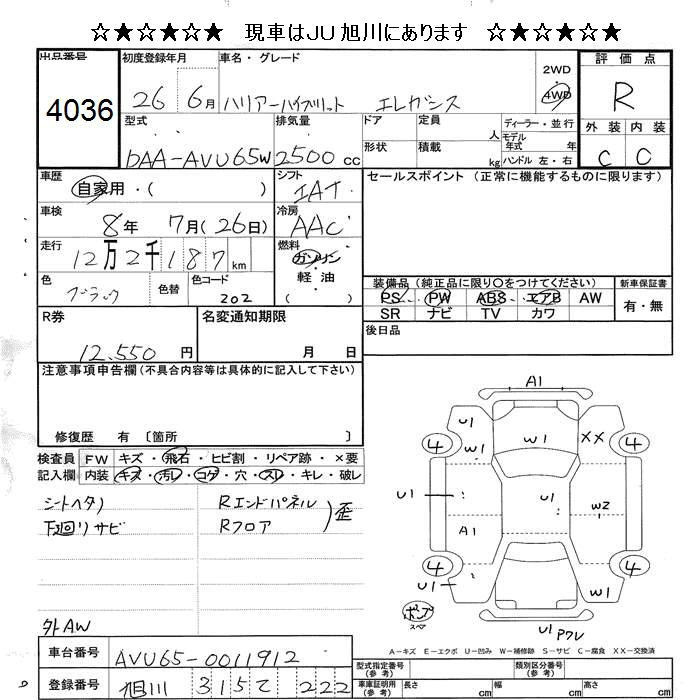 ☆★☆★☆★ 現車はJU旭川にあります ☆★☆★☆★
出品番号 初度登録年月 車名・グレード 2WD 4WD 評価点
4036 26 6月 ハリアーハイブリット エレガンス R
型式 排気量 ドア 定員 人 ディーラー・並行 外装 内装
DAA-AVU65W 2500cc 形状 積載 kg モデル年式 年 ハンドル 左・右 C C
車歴 シフト セールスポイント (正常に機能するものに限ります)
自家用・( ) IAT
車検 8年 7月(26日) 冷房 AAC
走行 12万2千187km 燃料 ガソリン
色 ブラック 色替 色コード 202 軽油 ( )
装備品(純正品に限り〇をつけてください) 新車保証書
PS PW ABS エアB AW 有・無
SR ナビ TV カワ
R券 12,550円 名変通知期限 月 日 後日品
注意事項申告欄(不具合内容等は具体的に記入して下さい)
修復歴 有 〔箇所
検査員 FW キズ・飛石・ヒビ割・リペア跡・×要
記入欄 内装 キズ・汚レ・コゲ・穴・スレ・キレ・破レ
シートヘタリ Rエンドパネル
下廻リサビ Rフロア )歪
外AW
A1
U1 W1 W1 XX
4 4
U1 U1 W2
A1
4 4
U1 W1
ボンプ スペア
U1 Pクレ
A-キズ E-エクボ U-凹み W-補修跡 S-サビ C-腐食 XX-交換済
車台番号 AVU65-0011912 型式指定番号(参考) 類別区分番号(参考)
登録番号 旭川 315て 222 車庫証明用(参考) 長さ cm 幅 cm 高さ cm